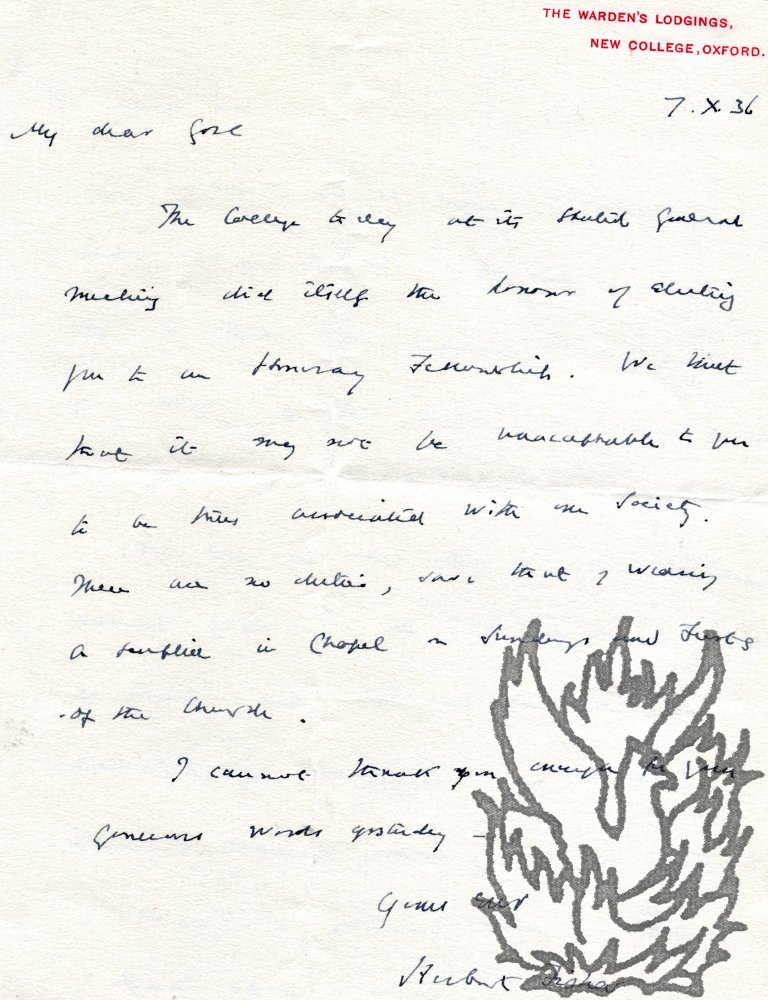 THE WARDEN'S LODGINGS,
NEW COLLEGE, OXFORD.
7.X.36
My dear
The College to day at its Stated General
meeting did itself the honour of electing
you to an Honorary Fellowship. We trust
that it may not be unacceptable to you
to be thus associated with our Society.
There are no duties, save that of wearing
a surplice in Chapel on Sundays and Feasts
of the Church.
I cannot thank you enough for your
generous words yesterday –
Yours ever
Herbert Fisher